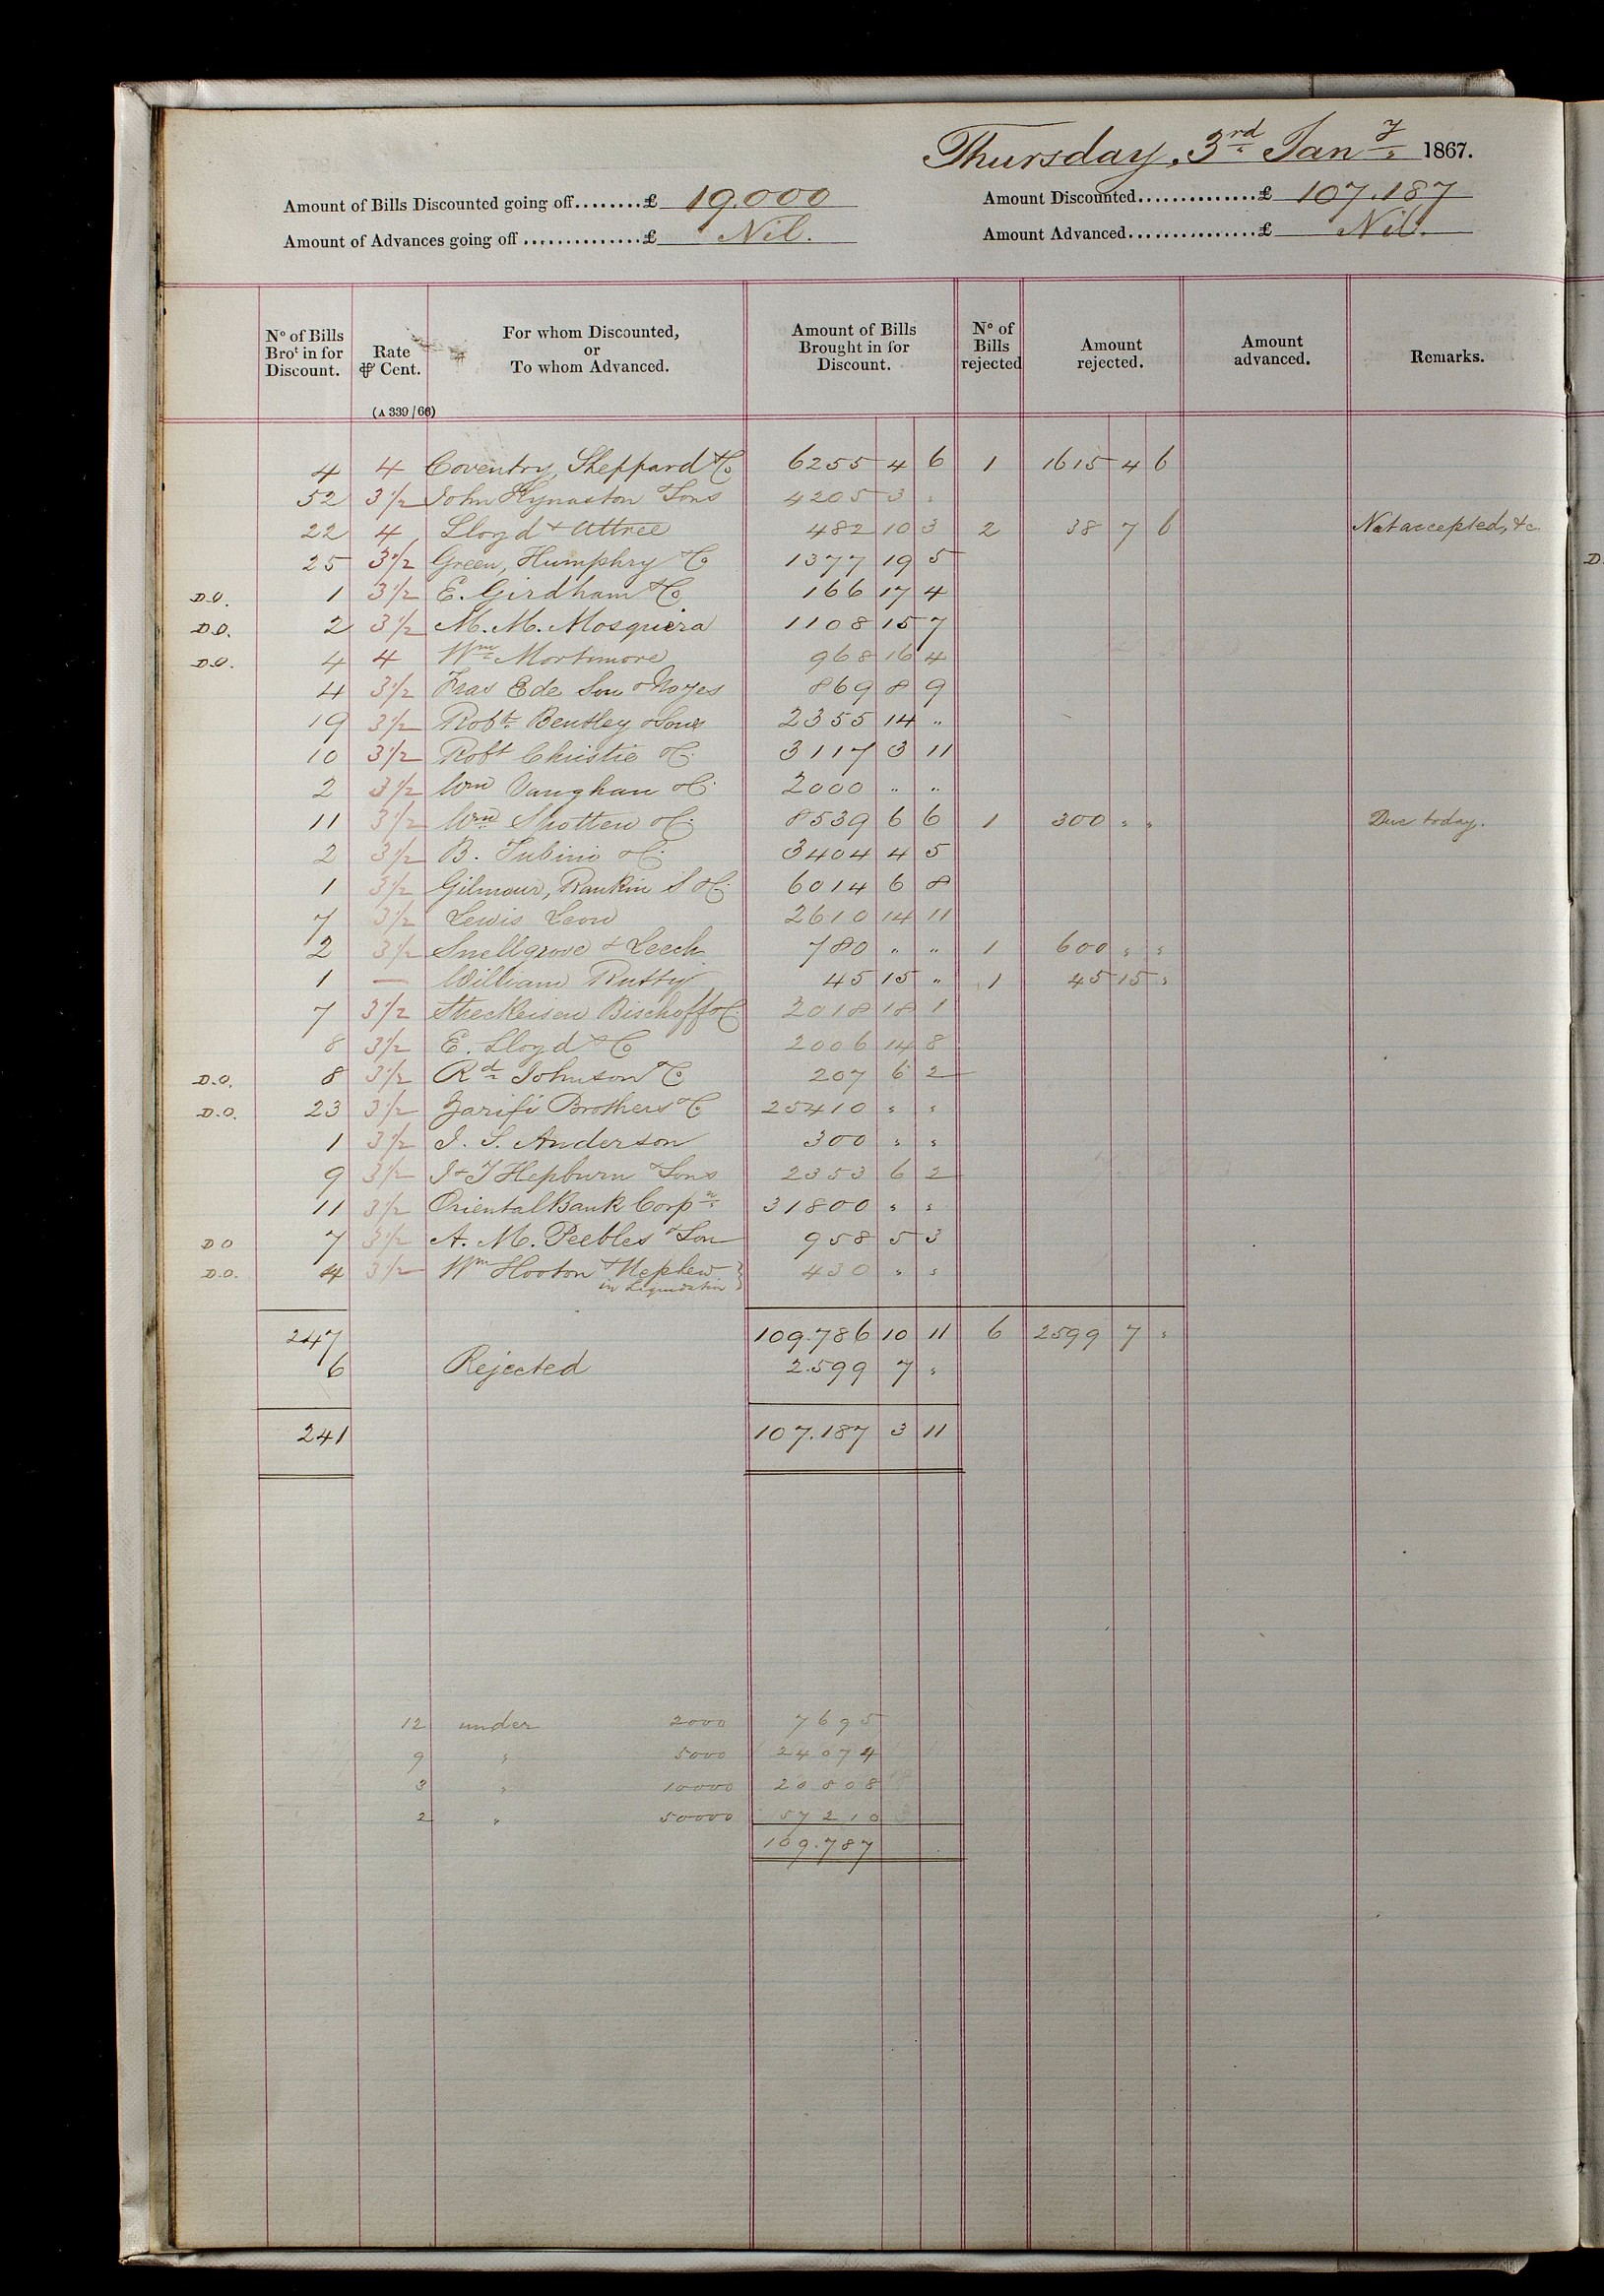 Thursday, 3rd Jany 1867.
Amount of Bills Discounted going off........£ 19.000 Amount Discounted..............£ 107.187
Amount of Advances going off..............£ Nil. Amount Advanced...............£ Nil.
No of Bills Brot in for Discount. Rate ⅌ Cent. For whom Discounted, or To whom Advanced. Amount of Bills Brought in for Discount. No of Bills rejected Amount rejected. Amount advanced. Remarks.
(A 339/66)
4 4 Coventry, Sheppard & Co 6255 4 6 1 1615 4 6
52 3½ John Kynaston & Sons 4205 3 "
22 4 Lloyd & Attree 482 10 3 2 38 7 6 Not accepted, &c
25 3½ Green, Humphry & Co 1377 19 5
D.O. 1 3½ E. Girdham & Co 166 17 4
D.O. 2 3½ M. M. Mosquera 1108 15 7
D.O. 4 4 Wm Mortimore 968 16 4
4 3½ Fras Ede Son & Noyes 869 8 9
19 3½ Robt Bentley & Sons 2355 14 "
10 3½ Robt Christie & Co 3117 3 11
2 3½ Wm Vaughan & Co 2000 " "
11 3½ Wm Shotten & Co 8539 6 6 1 300 " " Due today.
2 3½ B. Tubino & Co 3404 4 5
1 3½ Gilmour, Rankin S & Co 6014 6 8
7 3½ Lewis Leon 2610 14 11
2 3½ Snellgrove & Leech 780 " " 1 600 " "
1 — William Rutty 45 15 " 1 45 15 "
7 3½ Streckeisen Bischoff & Co 2018 18 1
8 3½ E. Lloyd & Co 2006 14 8
D.O. 8 3½ Rd Johnson & Co 207 6 2
D.O. 23 3½ Zarifi Brothers & Co 25410 " "
1 3½ J. S. Anderson 300 " "
9 3½ J & T Hepburn & Sons 2353 6 2
11 3½ Oriental Bank Corpn 31800 " "
D O 7 3½ A. M. Peebles & Son 958 5 3
D.O. 4 3½ Wm Hooton & Nephew } 430 " "
in Liquidation
247 109.786 10 11 6 2599 7 "
6 Rejected 2.599 7 "
241 107.187 3 11
12 under 2000 7695
9 " 5000 24074
3 " 10000 20808
2 " 50000 57210
109.787